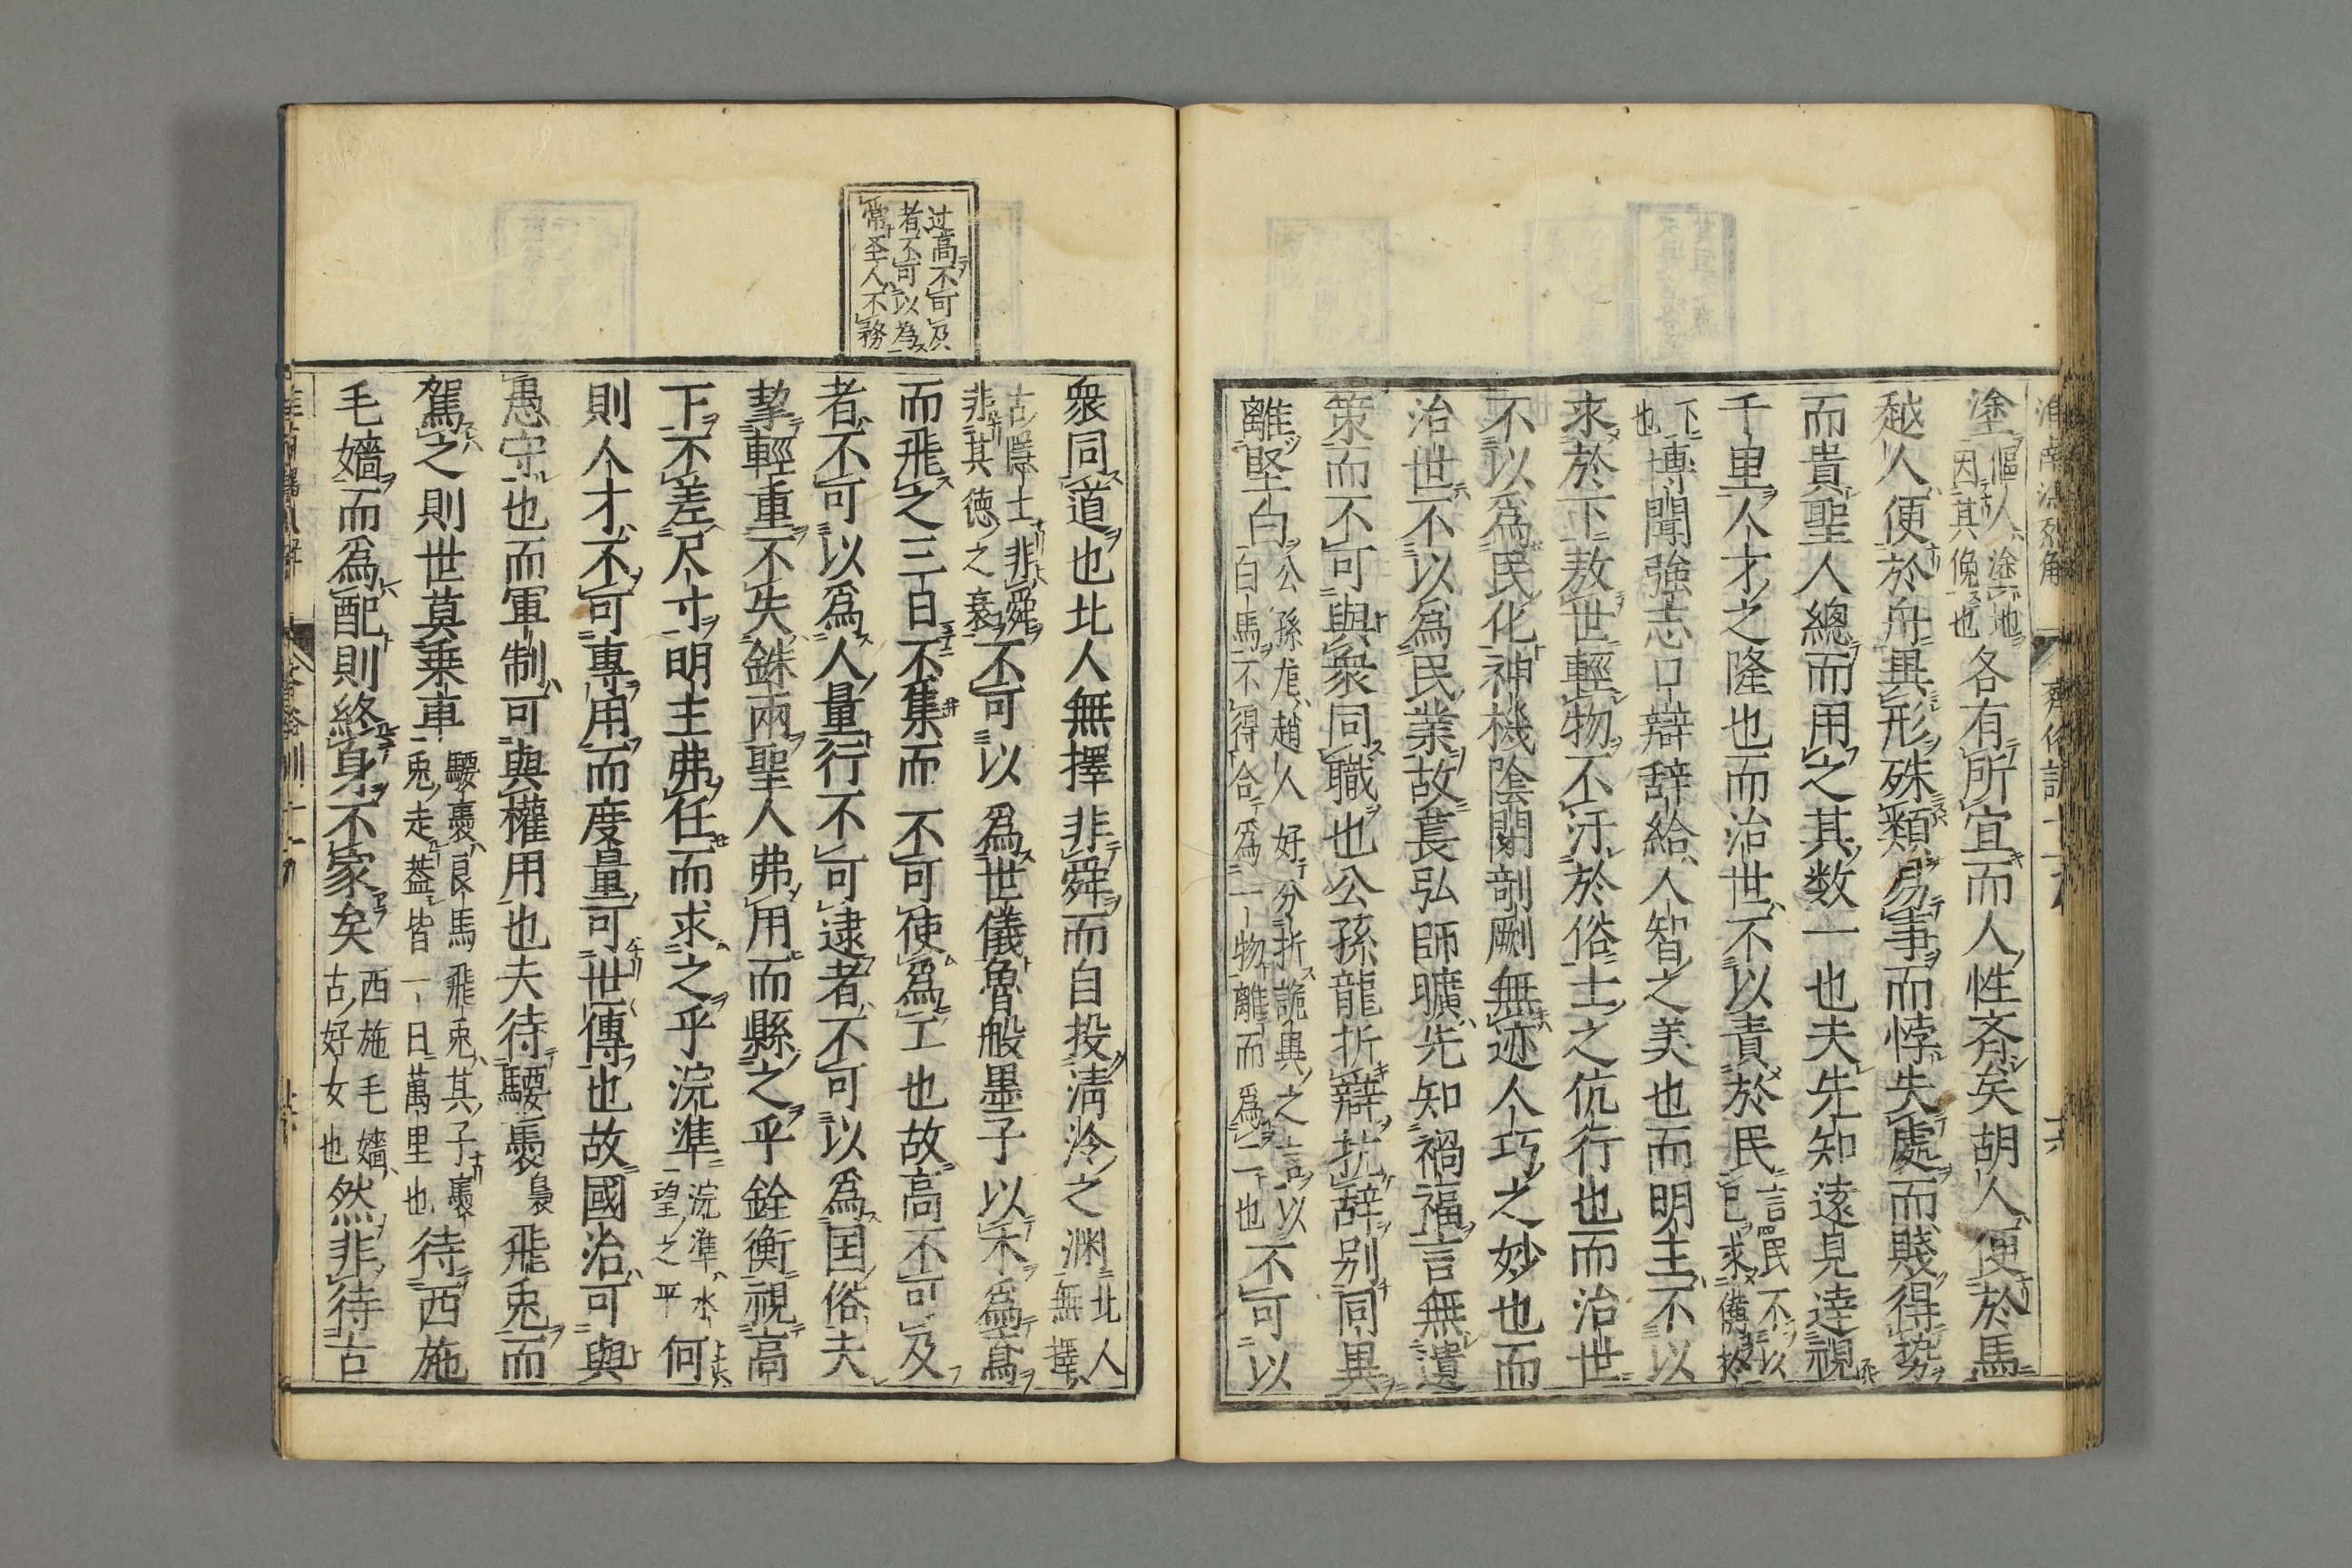 塗傴人塗地因其俛也各有所宜而人性斉矣胡人便於馬
越人便於舟異形殊類易事而悖失處而賤得勢
而貴聖人總而用之其数一也夫先知遠見達視
千里人才之隆也而治世不以責於民言民不以已求備於
下也博聞強志口辯辞給人智之美也而明主不以
求於下敖世輕物不汙於俗士之伉行也而治世
不以爲民化神機陰閉剖劂無迹人巧之妙也而
治世不以爲民業故萇弘師曠先知禍福言無遺
策而不可與衆同職也公孫龍折辯抗辞別同異
離堅白公孫龙趙人好分折詭異之言以白馬不得合爲一物離而爲二也不可以
衆同道也北人無擇非舜而自投淸泠之渊北人無擇
古隠士非舜非其徳之衰不可以爲世儀魯般墨子以木爲鳶
而飛之三日不集而不可使爲工也故高不可及
者不可以爲人量行不可逮者不可以爲国俗夫
挈輕重不失銖兩聖人弗用而縣之乎銓衡視高
下不差尺寸明主弗任而求之乎浣準浣準水望之平何
則人才不可專用而度量可世傳也故國治可與
愚守也而軍制可與權用也夫待騕褭飛兎而
駕之則世莫乗車騕褭良馬飛兎其子褭兎走葢皆一日萬里也待西施
毛嬙而爲配則終身不家矣西施毛嬙古好女也然非待古
过高不可及
者不可以為
常圣人不務